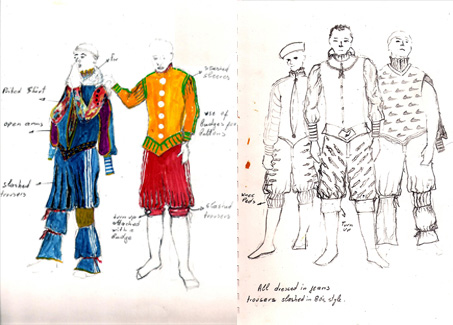 Fur
Slashed
Sleeves
Puffed Shirt
open arms
use of
Badges for
Buttons
Slashed
trousers
turn up
attached
with a
Badge
Slashed
trousers
Knee
Pads
Turn
up
All dressed in jeans
trousers slashed in 16c style.